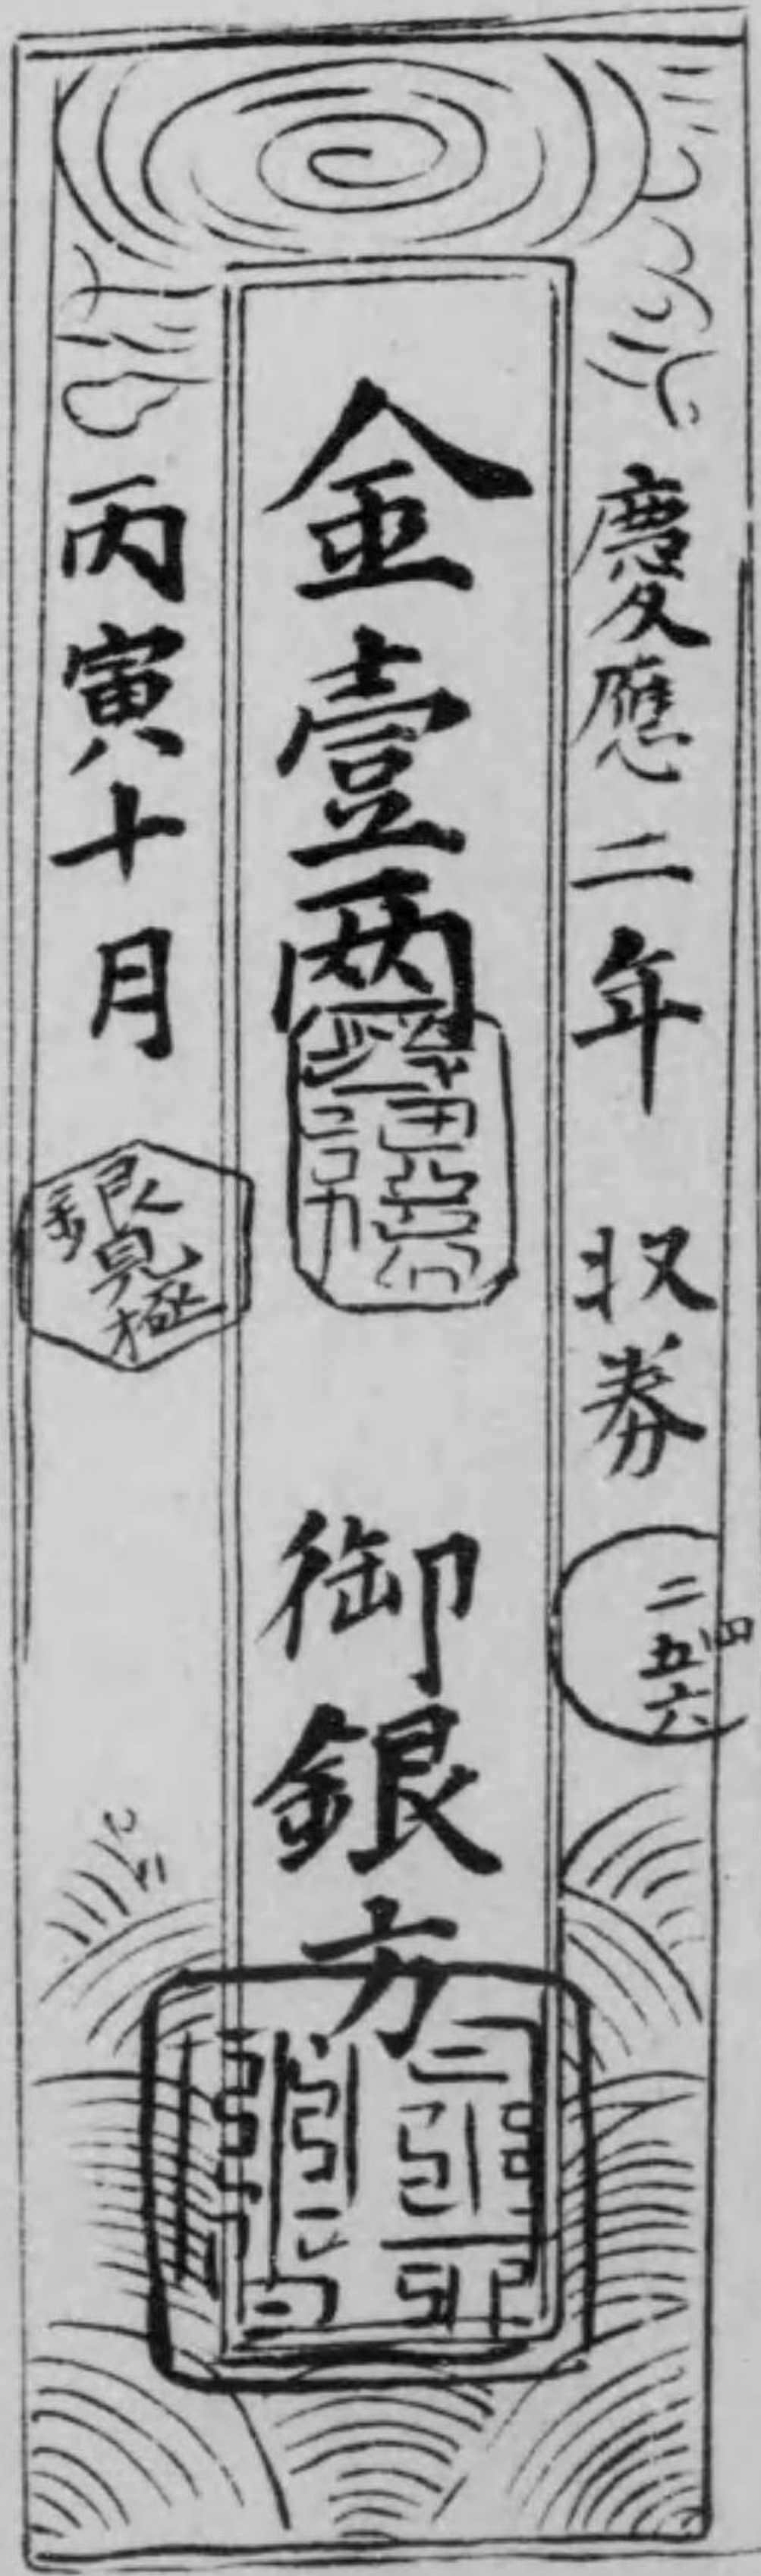 慶應二年 収券
二四五六
金壹兩
御銀方
丙寅十月
銀見極